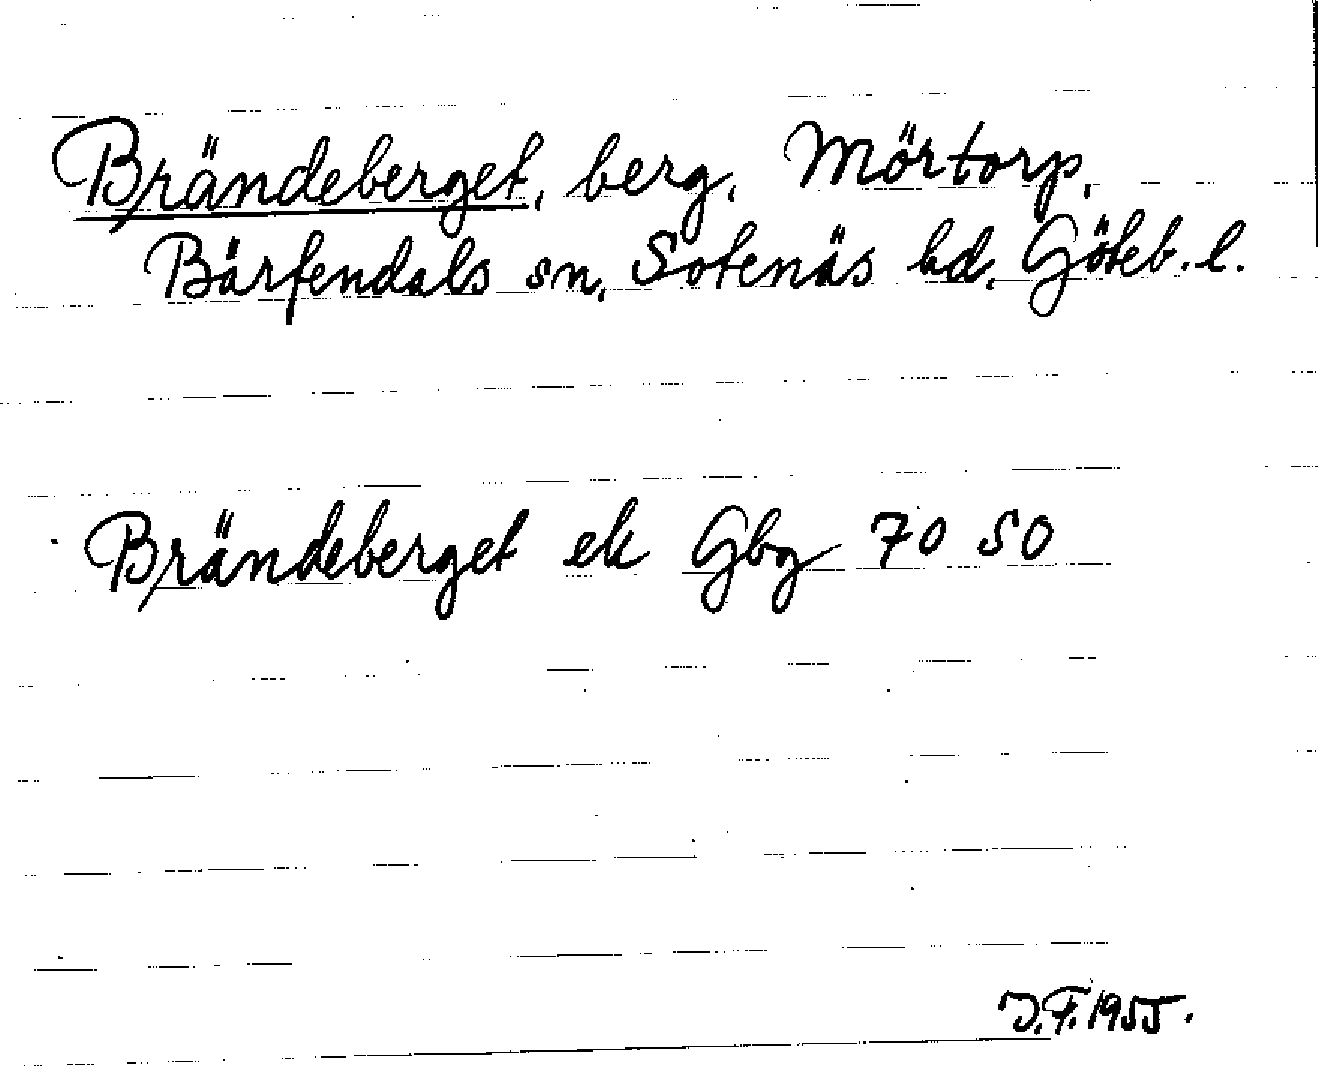 Brändeberget, berg, Mörtorp,
Bärfendals sn, Sotenäs hd, Göteb. l.
Brändeberget ek Gbg 70 SO
J.F. 1955.